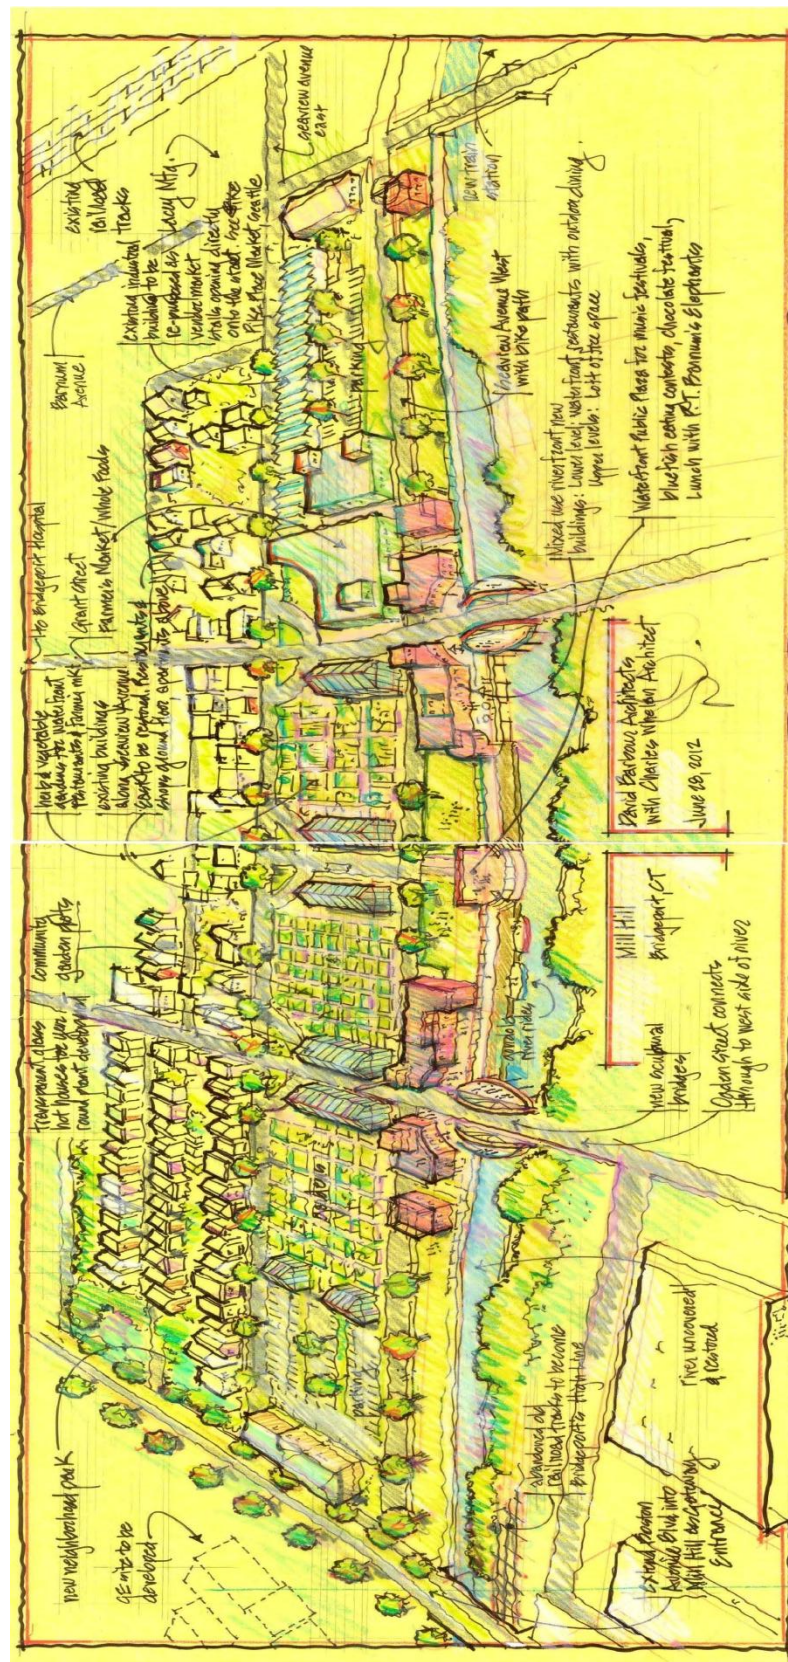 new neighborhood park
GE site to be
developed
transparent glass
hot houses for year
round plant development
community
garden plots
herb & vegetable
gardens for waterfront
restaurants & farmers mkt
existing buildings
along Seaview Avenue
East to be restored. Restaurants &
shops ground floor apartments above
to Bridgeport Hospital
Grant Street
Farmer's Market/Whole Foods
Barnum
Avenue
existing industrial
building to be
re-purposed as
vendor market
stalls opening directly
onto the street. See the
Pike Place Market Seattle
Lacey Mfg.
existing
railroad
tracks
Seaview avenue
east
new train
station
parking
Seaview Avenue West
with bike path
Mixed use riverfront new
buildings: Lower level: waterfront restaurants with outdoor dining.
Upper levels: Loft office space
Waterfront Public Plaza for music festivals,
bluefish eating contests, chocolate festival,
Lunch with P.T. Barnum's Elephants
gardens
parking
river rides
David Barbour Architects
with Charles Whelan Architect
June 28, 2012
Mill Hill
Bridgeport CT
new sculptural
bridges
Ogden street connects
through to west side of river
river uncovered
& restored
abandoned old
railroad tracks to become
Bridgeport's High Line
Extend Boston
Avenue Blvd into
Mill Hill as Gateway
Entrance